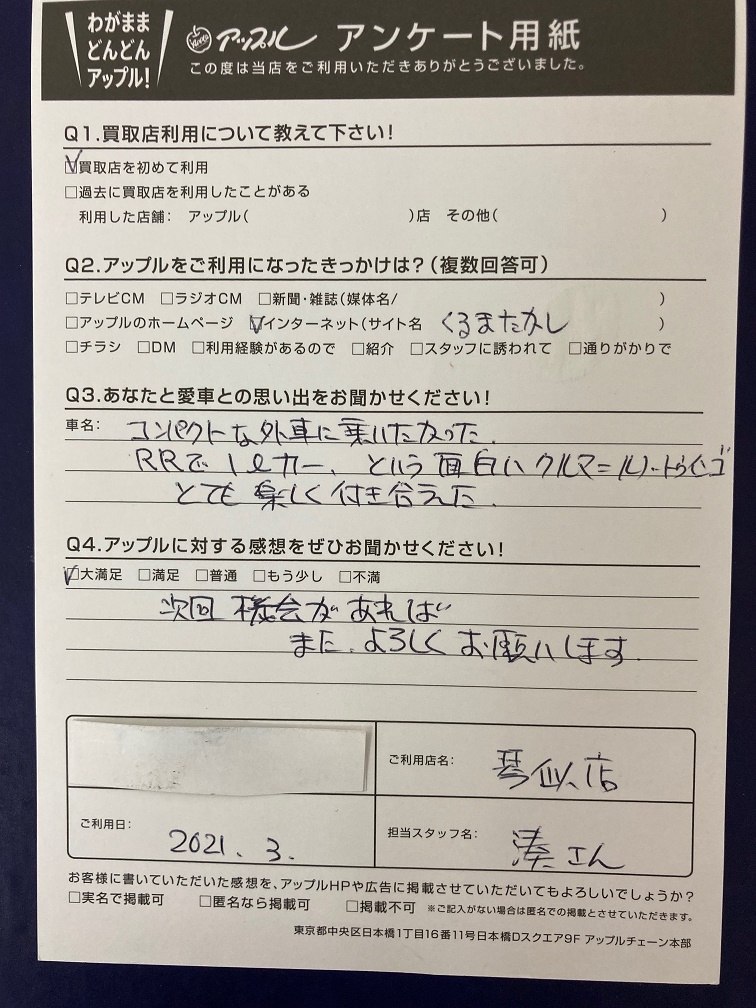 わがまま
どんどん
アップル!
アップル アンケート用紙
この度は当店をご利用いただきありがとうございました。
Q1.買取店利用について教えて下さい!
☑買取店を初めて利用
□過去に買取店を利用したことがある
利用した店舗: アップル( )店 その他( )
Q2.アップルをご利用になったきっかけは?(複数回答可)
□テレビCM □ラジオCM □新聞・雑誌(媒体名/ )
□アップルのホームページ ☑インターネット(サイト名 くるまたかし )
□チラシ □DM □利用経験があるので □紹介 □スタッフに誘われて □通りがかりで
Q3.あなたと愛車との思い出をお聞かせください!
車名: コンパクトな外車に乗りたかった.
RRで1ℓカー、という面白いクルマ=ルノートゥインゴ
とても楽しく付き合えた.
Q4.アップルに対する感想をぜひお聞かせください!
☑大満足 □満足 □普通 □もう少し □不満
次回機会があれば
また、よろしくお願いします.
ご利用店名: 琴似店
ご利用日: 2021.3.
担当スタッフ名: 湊さん
お客様に書いていただいた感想を、アップルHPや広告に掲載させていただいてもよろしいでしょうか?
□実名で掲載可 □匿名なら掲載可 □掲載不可 ※ご記入がない場合は匿名での掲載とさせていただきます。
東京都中央区日本橋1丁目16番11号日本橋Dスクエア9F アップルチェーン本部